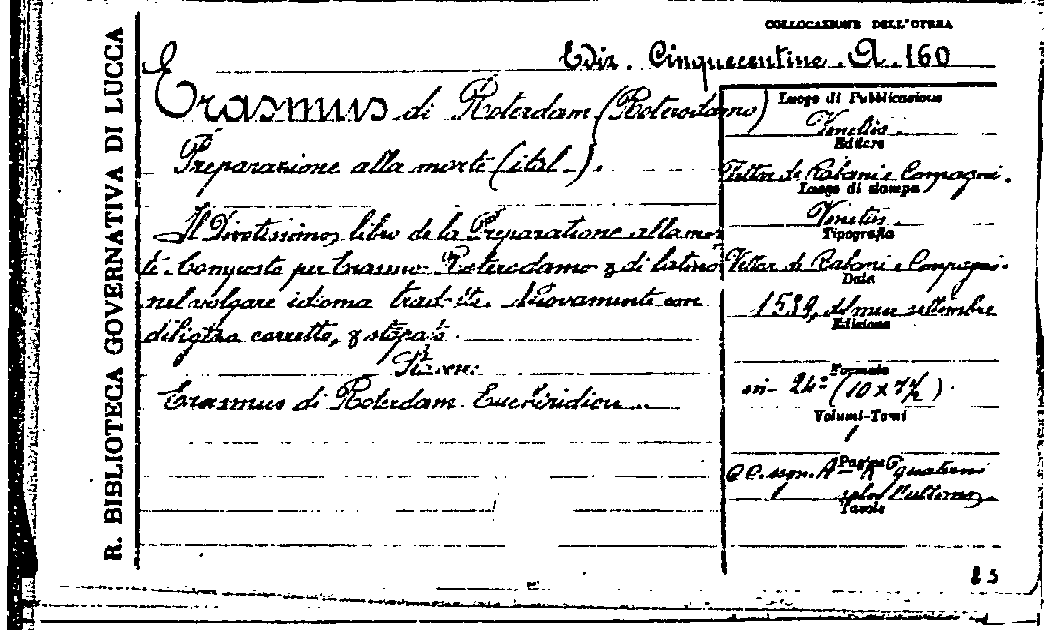 R. BIBLIOTECA GOVERNATIVA DI LUCCA
COLLOCAZIONE DELL'OPERA
Ediz. Cinquecentine. A. 160
Erasmus di Roterdam (Roterodamo)
Preparazione alla morte (ital.).
Il Divotissimo, libro de la Preparatione alla mor
te. Composto per Erasmo Roterodamo & di latino
nel volgare idioma tradotto. Novamente con
corretto, & stāpato.
Erasmus di Roterdam
Luogo di Pubblicazione
Venetiis.
Editore
Vettor de Rabani e Compagni.
Luogo di stampa
Venetiis.
Tipografia
Vettor de Rabani e Compagni.
Data
1539, del mese settembre
Edizione
Formato
in- 24° (10 x 7½).
Volumi-Tomi
1
Pagine
CC. segn. quaterni
l'ultimo
Tavole
25